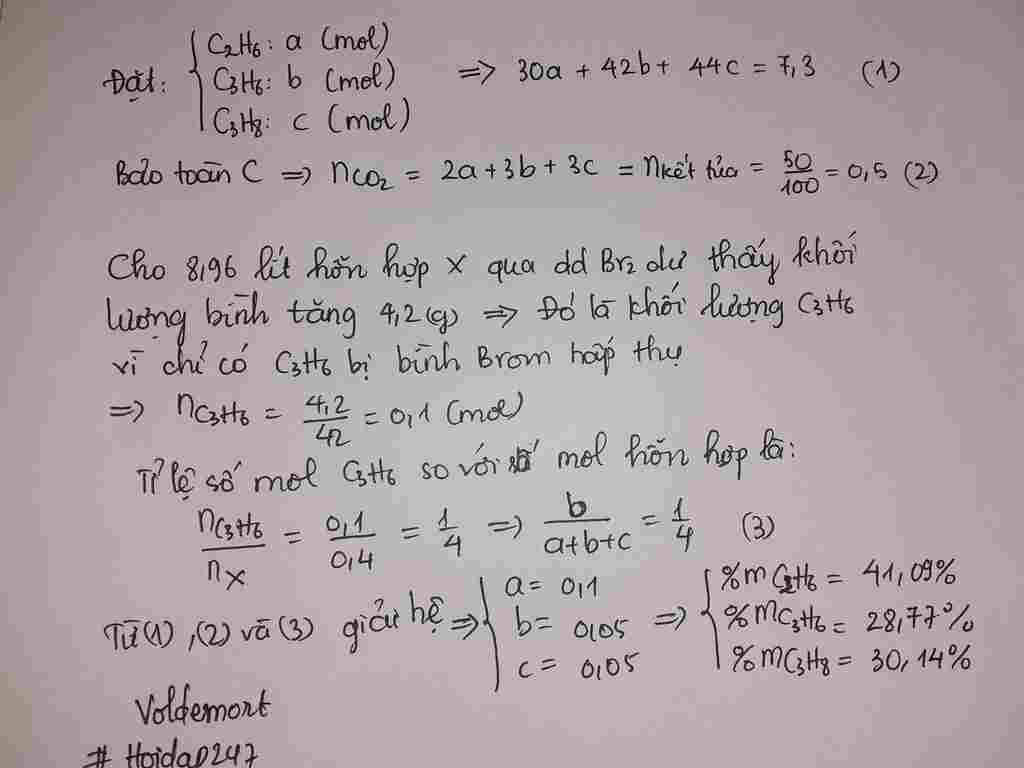 Đặt: { C2H6: a (mol)
C3H6: b (mol) => 30a + 42b + 44c = 7,3 (1)
C3H8: c (mol)
Bảo toàn C => nCO2 = 2a+3b+3c = nkết tủa = 50/100 = 0,5 (2)
Cho 8,96 lít hỗn hợp X qua dd Br2 dư thấy khối
lượng bình tăng 4,2(g) => Đó là khối lượng C3H6
vì chỉ có C3H6 bị bình Brom hấp thụ
=> nC3H6 = 4,2/42 = 0,1 (mol)
Tỉ lệ số mol C3H6 so với số mol hỗn hợp là:
nC3H6/nX = 0,1/0,4 = 1/4 => b/(a+b+c) = 1/4 (3)
Từ (1), (2) và (3) giải hệ => { a = 0,1 b = 0,05 c = 0,05 => { %mC2H6 = 41,09% %mC3H6 = 28,77% %mC3H8 = 30,14%
Voldemort
# Hoidap247